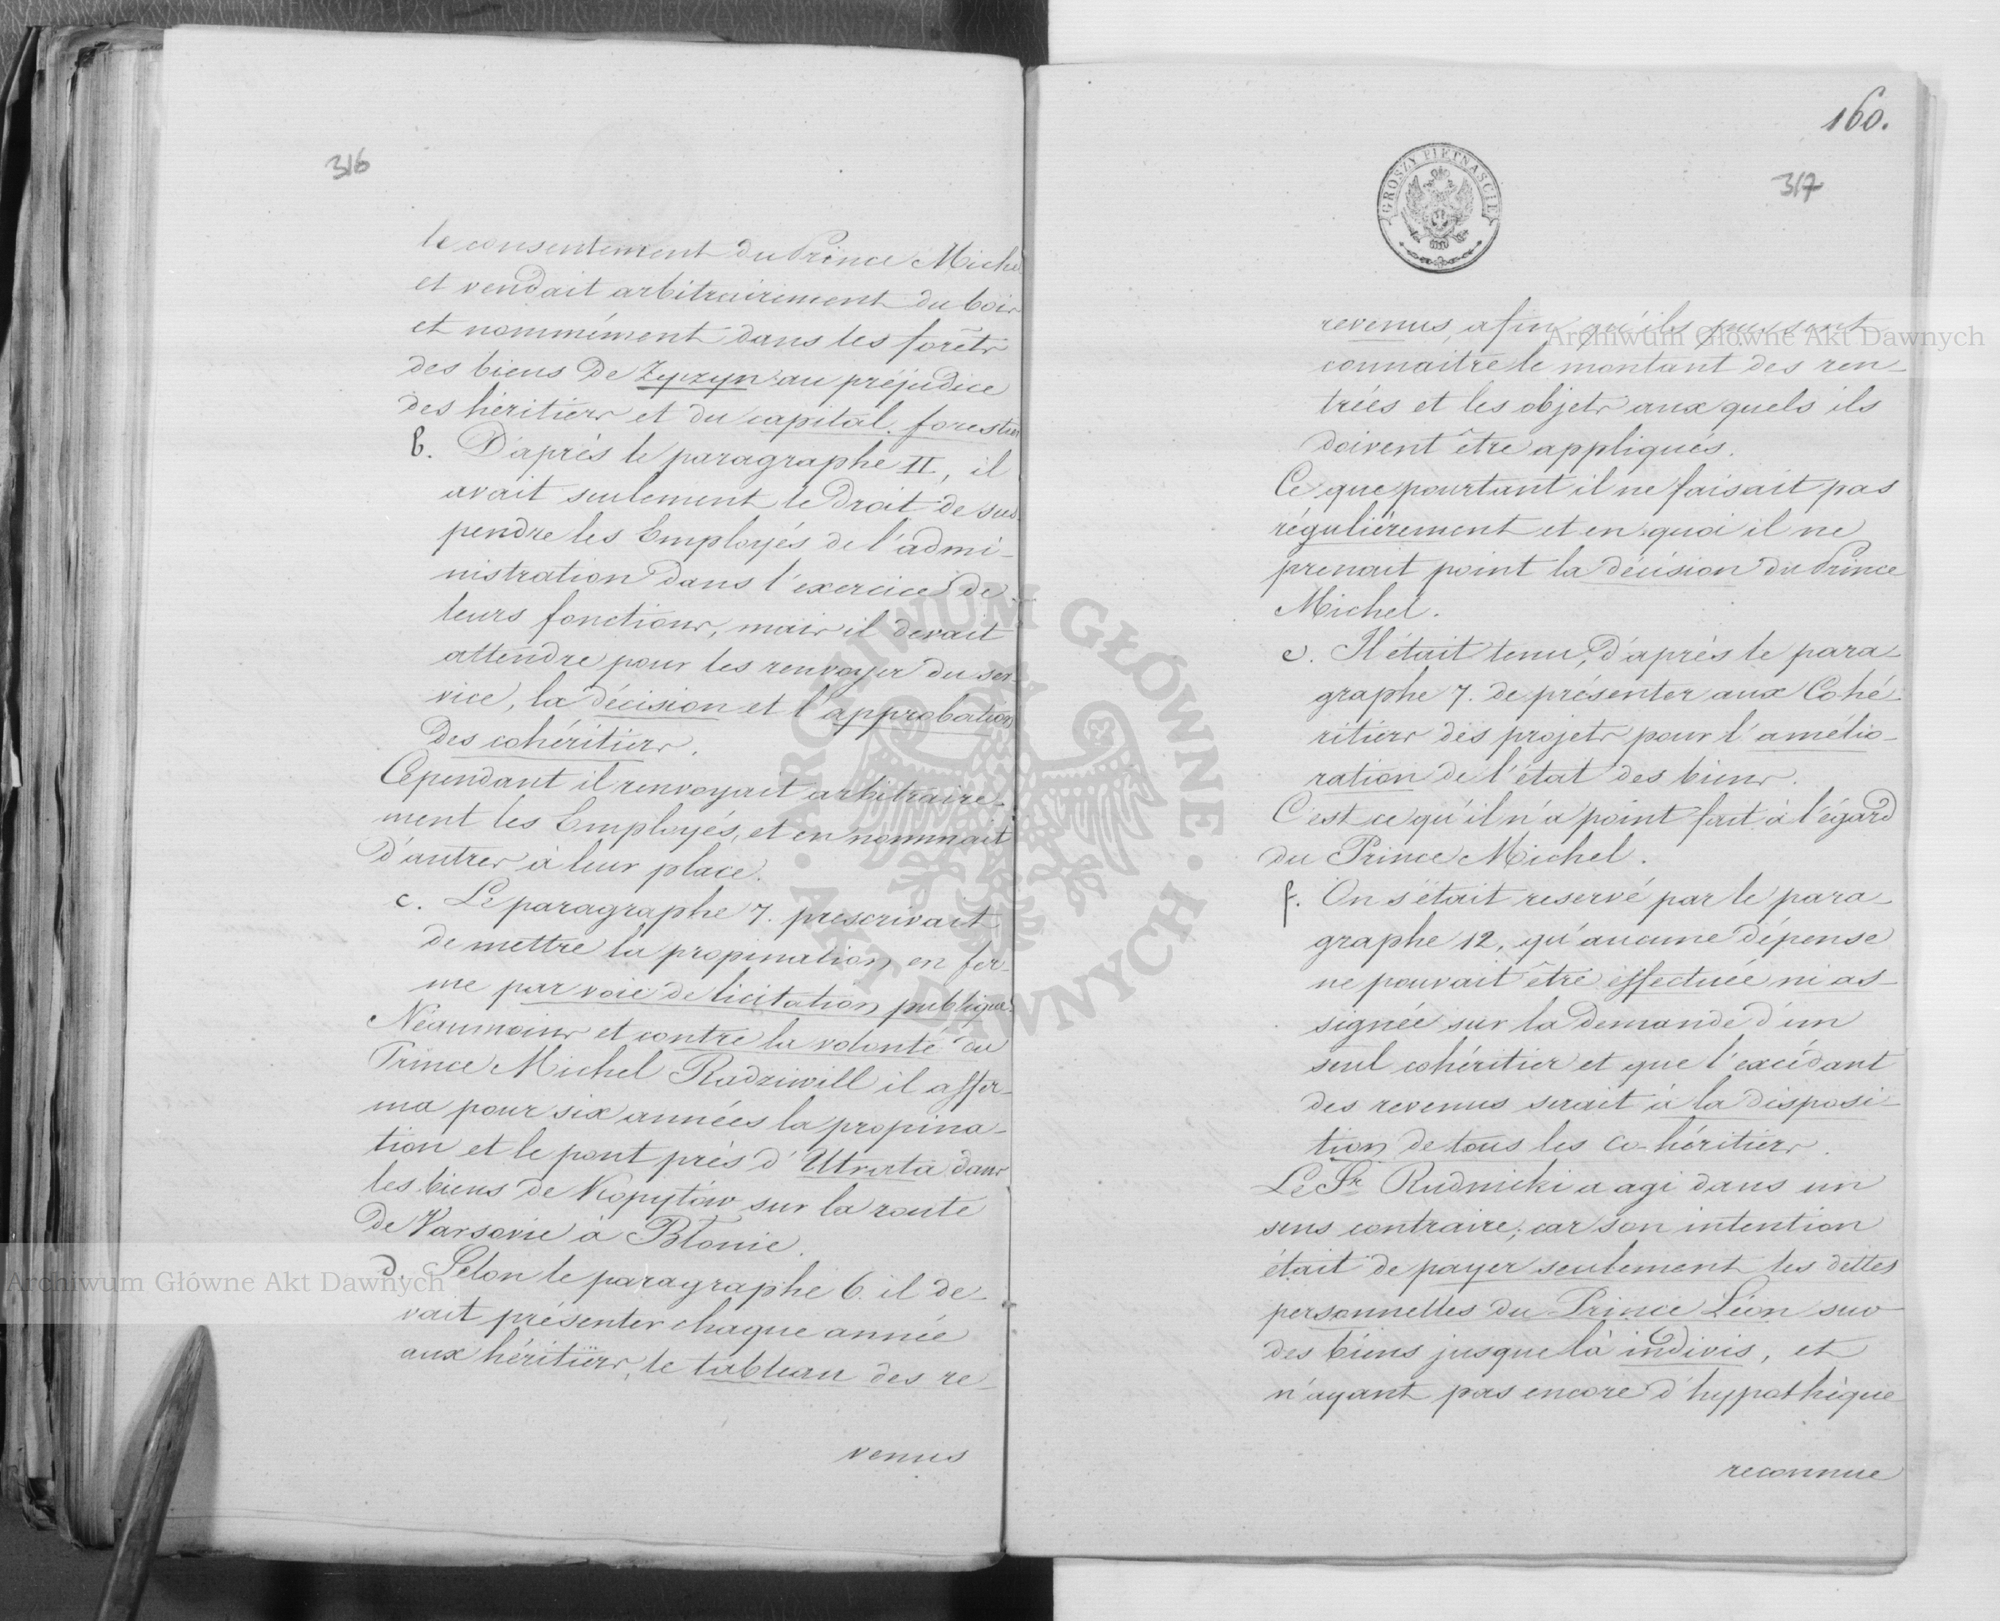 316
le consentement du Prince Michel
et vendait arbitrairement du bois
et nommément dans les forêts
des biens de Zyrzyn au préjudice
des héritiers et du capital forestier
b. D'après le paragraphe II, il
avait seulement le droit de sus-
pendre les Employés de l'admi-
nistration dans l'exercice de
leurs fonctions, mais il devait
attendre pour les renvoyer du ser-
vice, la décision et l'approbation
des cohéritiers.
Cependant il renvoyait arbitraire-
ment les Employés, et en nommait
d'autres à leur place.
c. Le paragraphe 7. prescrivait
de mettre la propination en fer-
me par voie de licitation publique.
Néanmoins et contre la volonté du
Prince Michel Radziwill il affer-
ma pour six années la propina-
tion et le pont près d'Utrata dans
les biens de Kopytów sur la route
de Varsovie à Błonie.
d. Selon le paragraphe 6. il de-
vait présenter chaque année
aux héritiers, le tableau des re-
venus
160.
317
GROSZY PIETNASCIE
revenus, afin qu'ils puissent
connaitre le montant des ren-
trées et les objets aux quels ils
doivent être appliqués.
Ce que pourtant il ne faisait pas
régulièrement et en quoi il ne
prenait point la décision du Prince
Michel.
e. Il était tenu, d'après le para-
graphe 7. de présenter aux Cohé-
ritiers des projets pour l'amélio-
ration de l'état des biens.
C'est ce qu'il n'a point fait à l'égard
du Prince Michel.
f. On s'était reservé par le para-
graphe 12, qu'aucune dépense
ne pouvait être effectuée ni as-
signée sur la demande d'un
seul cohéritier et que l'excédant
des revenus serait à la disposi-
tion de tous les co-héritiers.
Le Sr Rudnicki a agi dans un
sens contraire; car son intention
était de payer seulement les dettes
personnelles du Prince Léon sur
des biens jusque là indivis, et
n'ayant pas encore d'hypothèque
reconnue
Archiwum Główne Akt Dawnych
Archiwum Główne Akt Dawnych
ARCHIWUM GŁÓWNE · AKT DAWNYCH ·